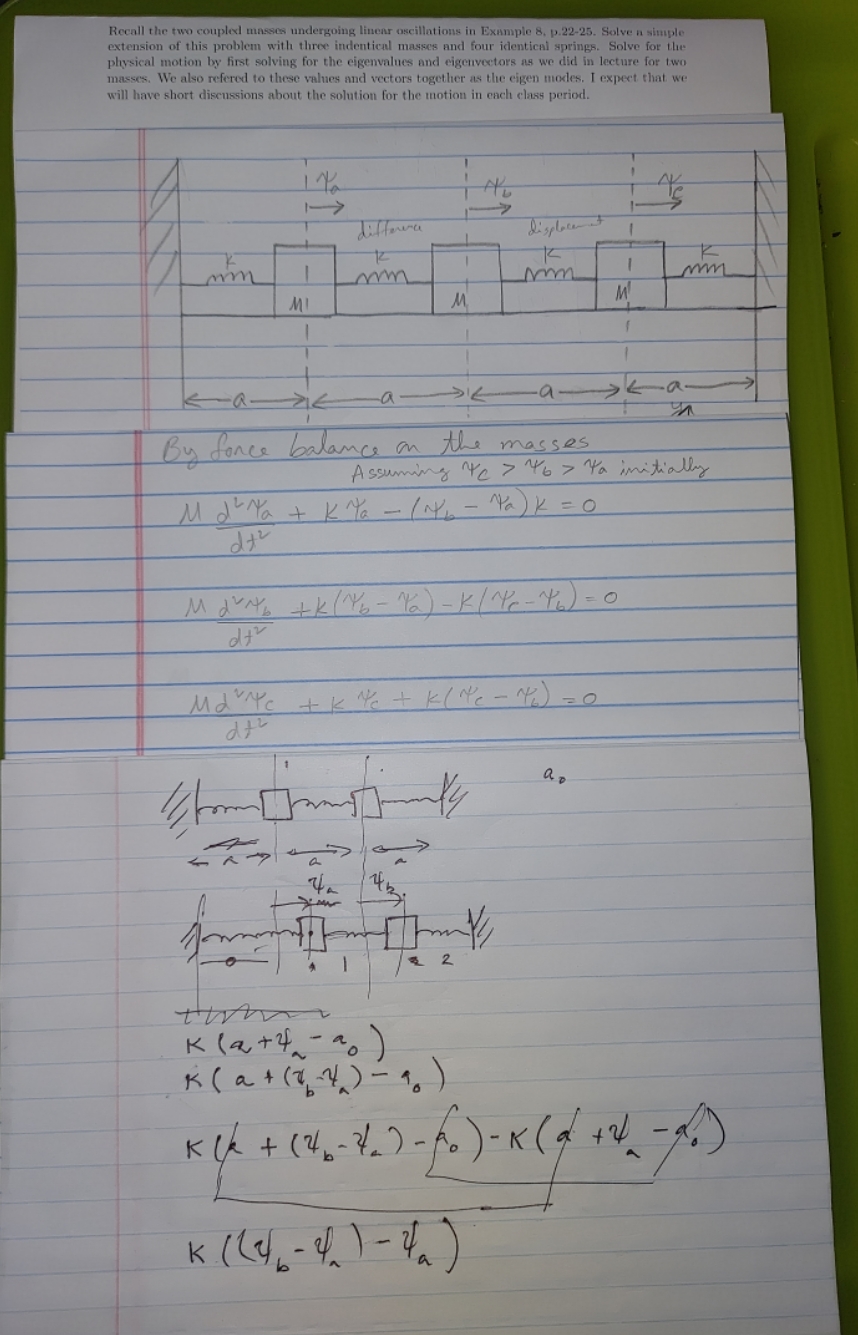 Recall the two coupled masses undergoing linear oscillations in Example 8, p.22-25. Solve a simple
extension of this problem with three indentical masses and four identical springs. Solve for the
physical motion by first solving for the eigenvalues and eigenvectors as we did in lecture for two
masses. We also refered to these values and vectors together as the eigen modes. I expect that we
will have short discussions about the solution for the motion in each class period.
Ψa Ψb Ψc
difference displacement
K K K K
M M M
a a a a
By force balance on the masses
Assuming Ψc > Ψb > Ψa initially
M d²Ψa/dt² + KΨa - (Ψb - Ψa)K = 0
M d²Ψb/dt² + K(Ψb - Ψa) - K(Ψc - Ψb) = 0
M d²Ψc/dt² + KΨc + K(Ψc - Ψb) = 0
a₀
a a a
Ψa Ψb
1 2
K(a + Ψa - a₀)
K(a + (Ψb - Ψa) - a₀)
K(a + (Ψb - Ψa) - a₀) - K(a + Ψa - a₀)
K((Ψb - Ψa) - Ψa)